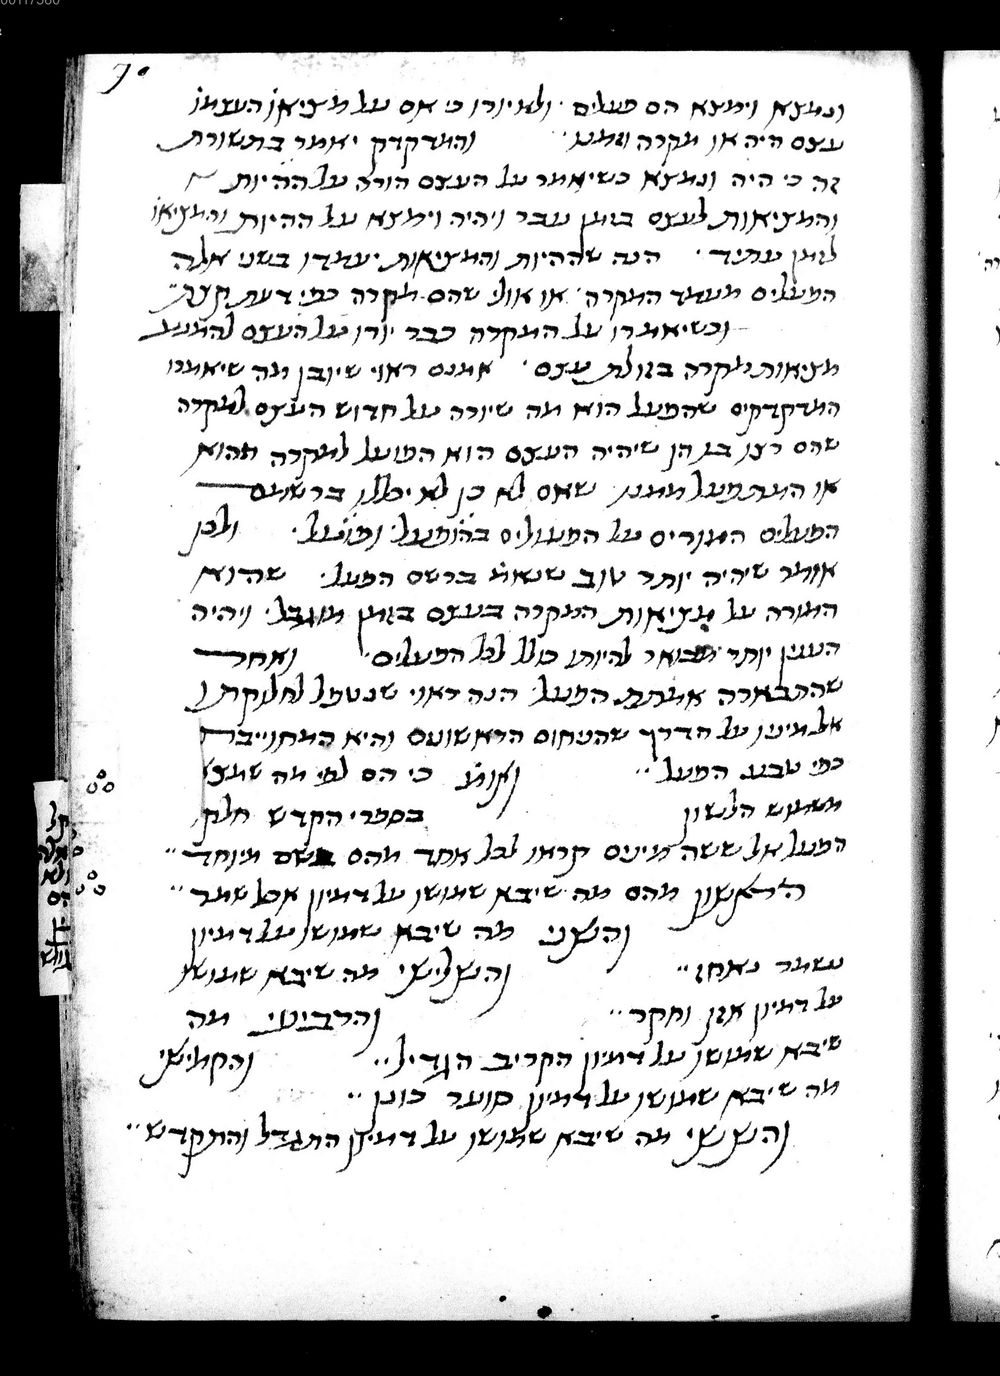 ונמצא וימצא הם פעלים · ולא יורו כי אם על מציאו' העצמו'
עצם היה או מקרה והמדקדק יאמר בתשורת
זה כי היה ונמצא כשיאמר על העצם הורה על ההיות
והמציאות לעצם בזמן עבר ויהיה וימצא על ההיות והמציאו'
לזמן עתיד · הנה שההיות והמציאות יעמדו בשני אלה
הפעלים מעמד המקרה · או אולי שהם מקרה כפי דעת קצת
וכשיאמרו על המקרה כבר יורו על העצם להמנע
מציאות מקרה בזולת עצם · אמנם ראוי שיובן מה שיאמרו
המדקדקים שהפעל הוא מה שיורה על חדוש העצם למקרה
שהם רצו בו הן שיהיה העצם הוא הפועל למקרה ההוא
או המתפעל ממנו שאם לא כן לא יכללו ברשמם
הפעלים המורים על הפעולים בהופעל ופועל · ולכן
אומר שיהיה יותר טוב שנאמ' ברשם הפעל · שהוא
המורה על מציאות המקרה בעצם בזמן מוגבל · ויהיה
הענין יותר מבואר להיותו כולל לכל הפעלים · ואחר
שהתבארה אמתת הפעל הנה ראוי שנטפל לחלוקתו
אל מיניו על הדרך שהניחום הראשונים והיא המחוייבת
כפי טבע הפעל ·· ואומ' כי הם לפי מה שמצאו
משמוש הלשון בספרי הקדש חלקו
הפעל אל ששה מינים קראו לכל אחד מהם בשם מיוחד ··
הראשון מהם מה שיבא שמושו על דמיון אכל שמר ··
והשני מה שיבא שמושו על דמיון
נשמר נאחז ·· והשלישי מה שיבא שמושו
על דמיון אזן וחקר ·· והרביעי מה
שיבא שמושו על דמיון הקריב הגדיל ·· והחמישי
מה שיבא שמושו על דמיון סוער כונן ··
והששי מה שיבא שמושו על דמיון התגדל והתקדש ··